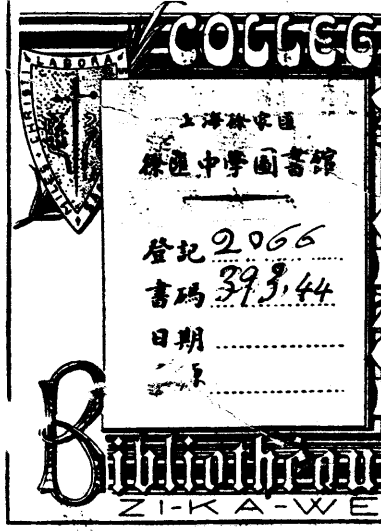 COLLEG
LABORA
MILES · CHRISTI
上海徐家匯
徐匯中學圖書館
登記 2066
書碼 393.44
日期
Bibliothèqu
ZI-KA-WE